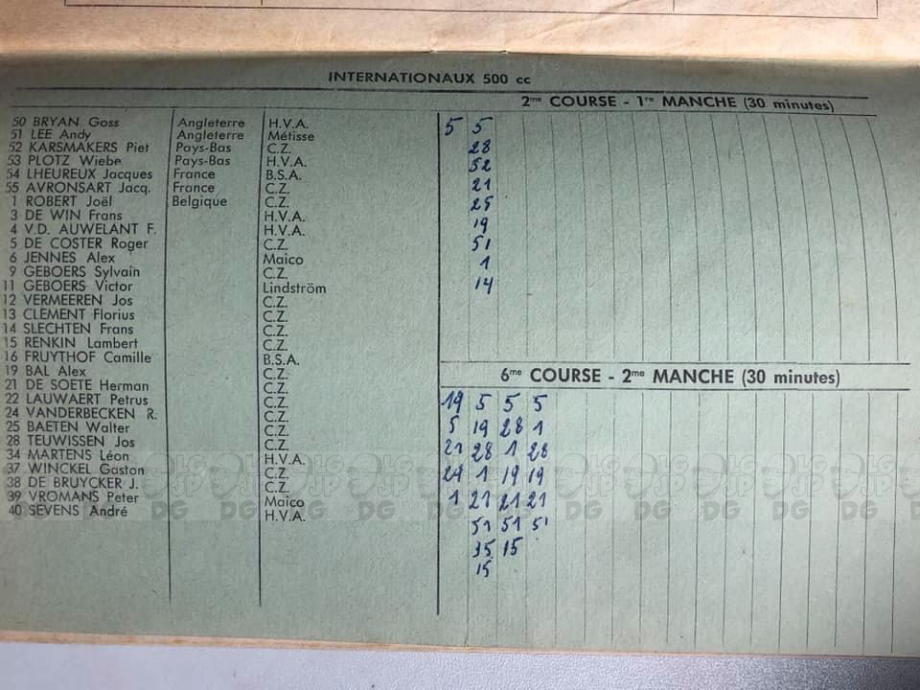 INTERNATIONAUX 500 cc
2me COURSE - 1re MANCHE (30 minutes)
50 BRYAN Goss Angleterre H.V.A.
51 LEE Andy Angleterre Métisse
52 KARSMAKERS Piet Pays-Bas C.Z.
53 PLOTZ Wiebe Pays-Bas H.V.A.
54 LHEUREUX Jacques France B.S.A.
55 AVRONSART Jacq. France C.Z.
1 ROBERT Joël Belgique C.Z.
3 DE WIN Frans H.V.A.
4 V.D. AUWELANT F. H.V.A.
5 DE COSTER Roger C.Z.
6 JENNES Alex Maico
9 GEBOERS Sylvain C.Z.
11 GEBOERS Victor Lindström
12 VERMEEREN Jos C.Z.
13 CLEMENT Florius C.Z.
14 SLECHTEN Frans C.Z.
15 RENKIN Lambert C.Z.
16 FRUYTHOF Camille B.S.A.
19 BAL Alex C.Z.
21 DE SOETE Herman C.Z.
22 LAUWAERT Petrus C.Z.
24 VANDERBECKEN R. C.Z.
25 BAETEN Walter C.Z.
28 TEUWISSEN Jos C.Z.
34 MARTENS Léon H.V.A.
37 WINCKEL Gaston C.Z.
38 DE BRUYCKER J. C.Z.
39 VROMANS Peter Maico
40 SEVENS André H.V.A.
5 5
28
52
21
25
19
51
1
14
6me COURSE - 2me MANCHE (30 minutes)
19 5 5 5
5 19 28 1
21 28 1 28
24 1 19 19
1 21 21 21
51 51 51
35 15
15
DG DG DG DG DG DG DG DG DG DG